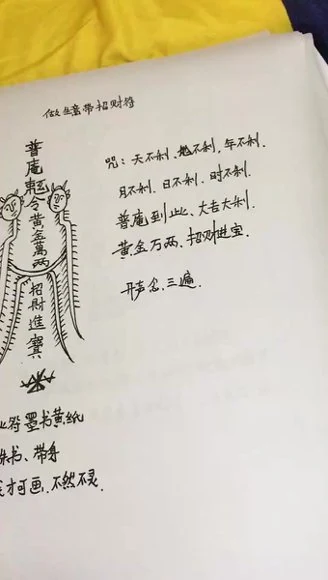 做生意带招财符
普庵令黄金萬两
招財進寶
咒：天不利.地不利.年不利.
月不利.日不利.时不利.
普庵到此、大吉大利.
黄金万两.招财进宝.
开声念.三遍.
此符墨书黄纸
朱书、带身
才可画.不然不灵.